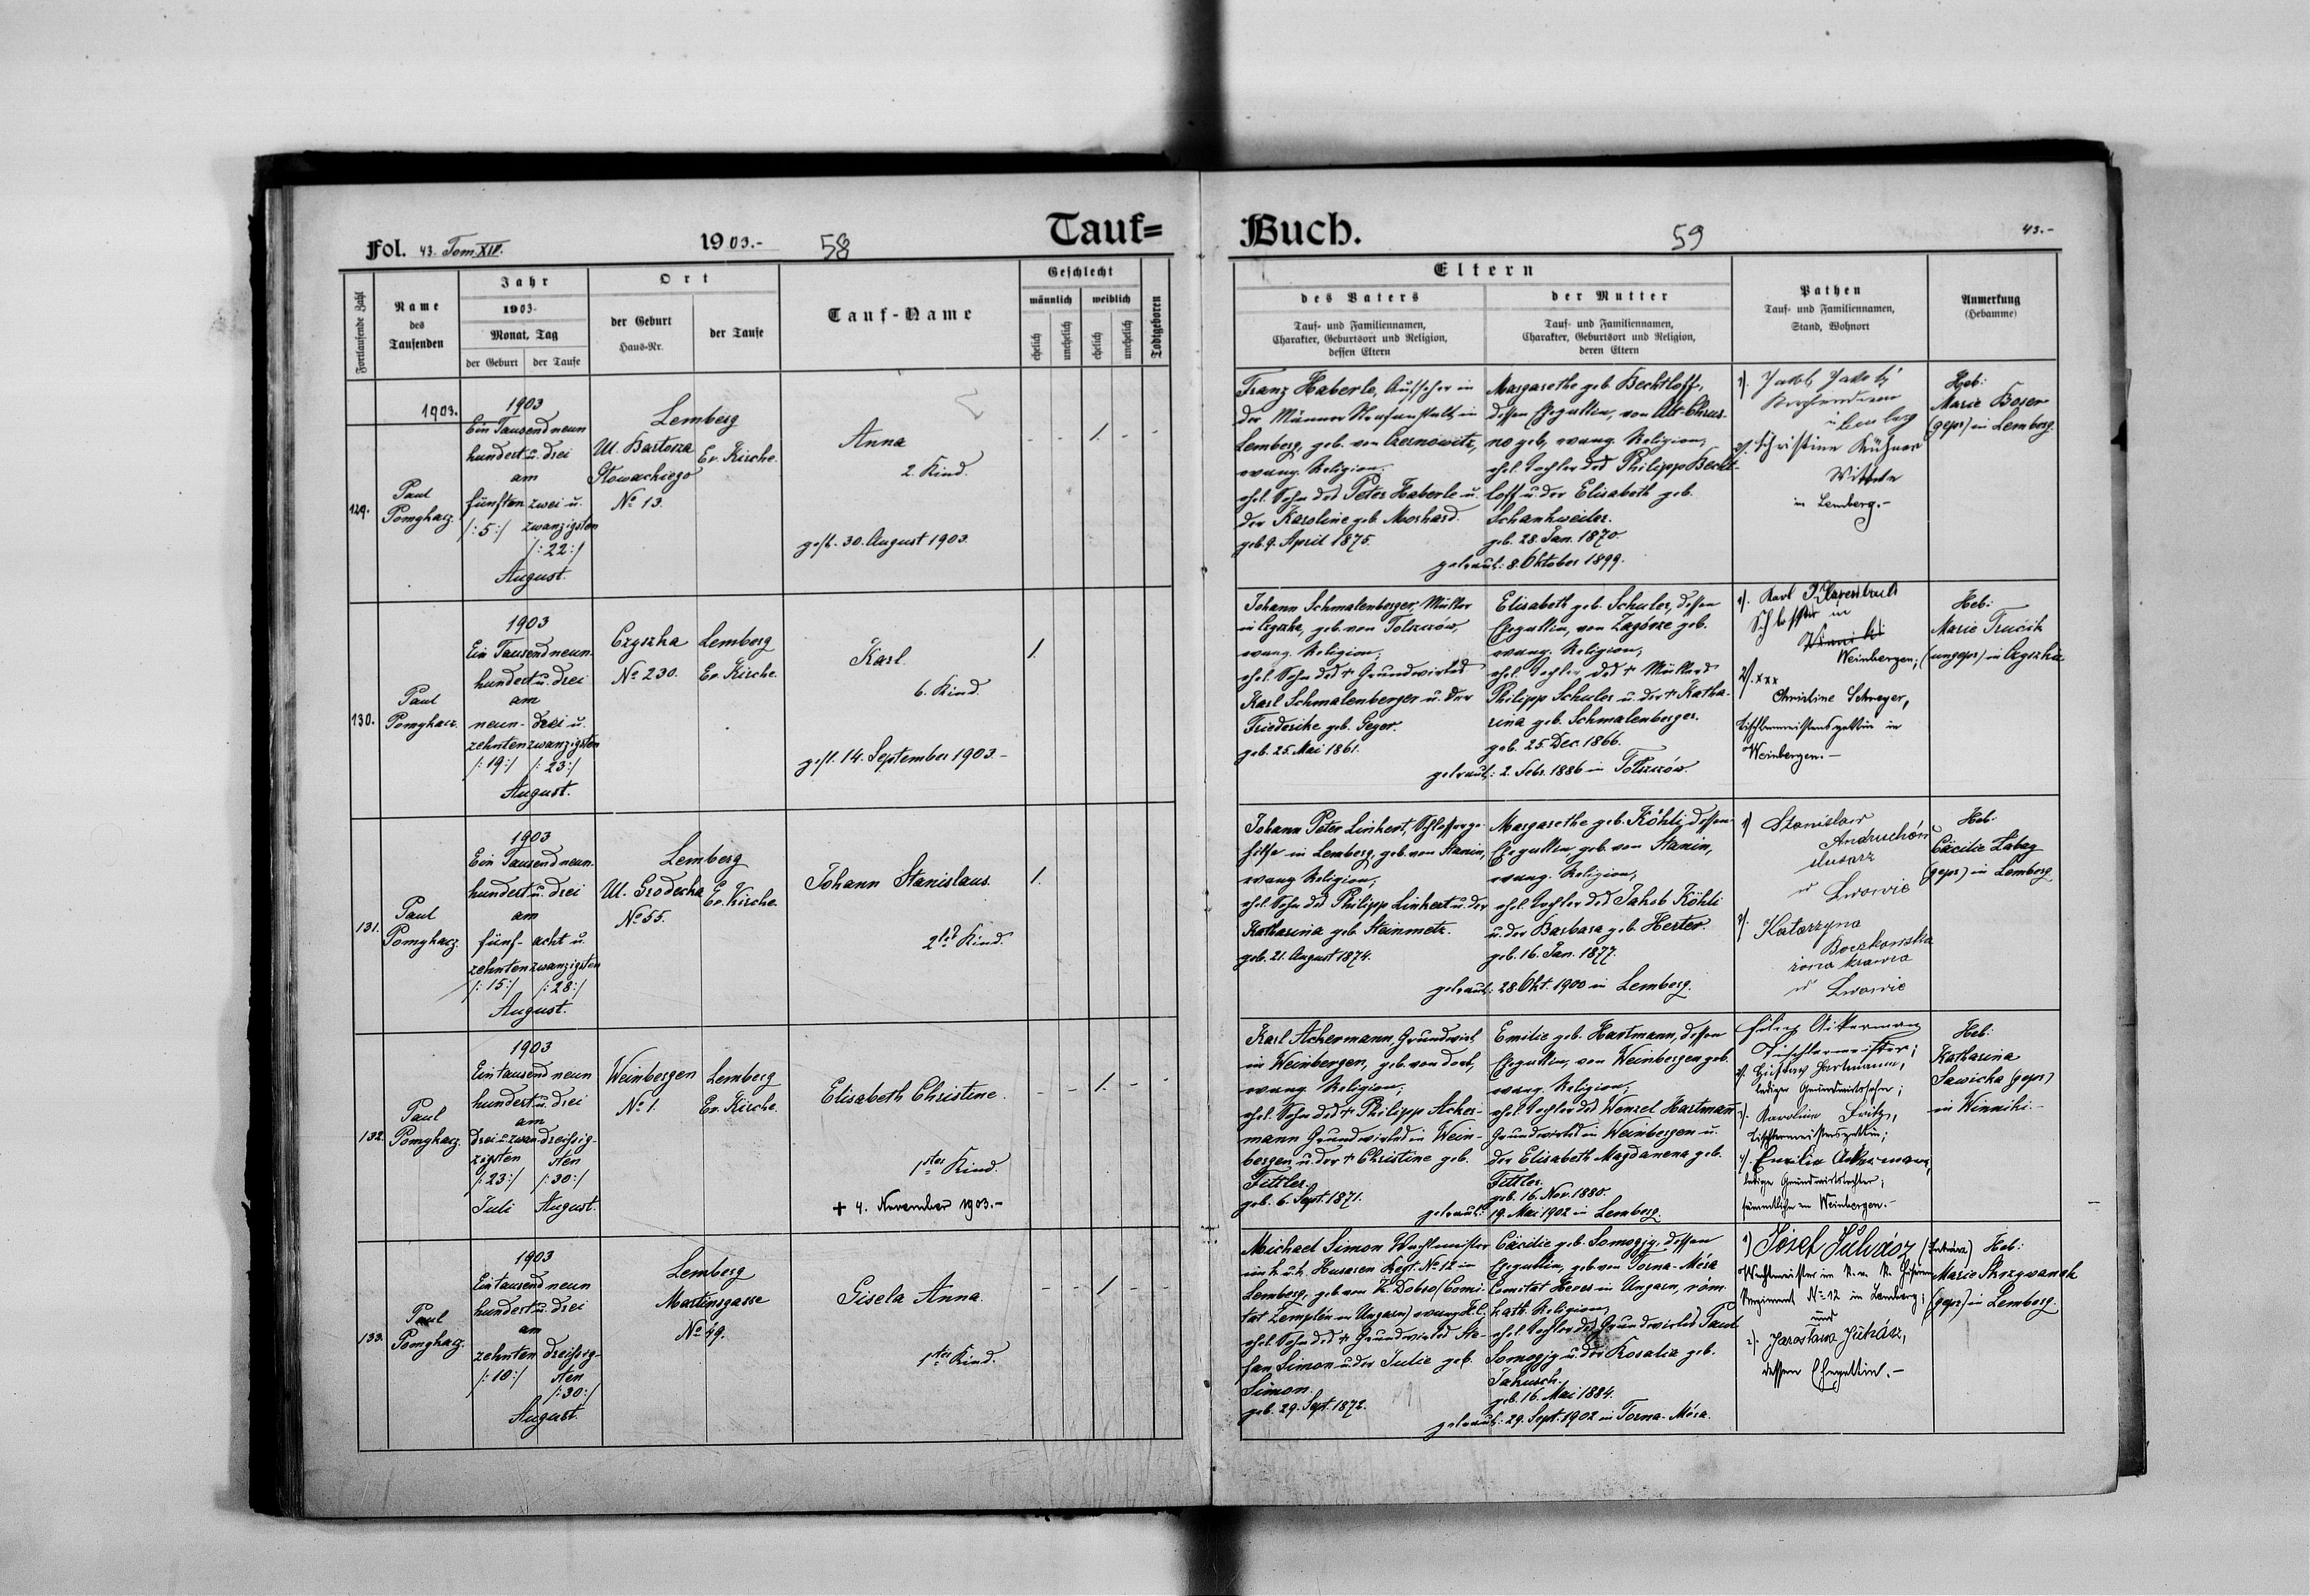 Fol. 43. Tom XIV.
1903.-
58
Tauf=
Fortlaufende Zahl
Name
des
Taufenden
Jahr
1903.
Monat, Tag
der Geburt
der Taufe
Ort
der Geburt
Haus-Nr.
der Taufe
Tauf-Name
Geschlecht
männlich
weiblich
ehelich
unehelich
ehelich
unehelich
Todtgeboren
1903.
129.
Paul
Pomykacz.
1903
Ein Tausend neun
hundert u. drei
am
fünften zwei u.
/:5:/ zwanzigsten
/:22:/
August.
Lemberg
Ul. Bartosza Ev. Kirche.
Głowackiego
No 13.
Anna
2. Kind
gest. 30. August 1903.
- - 1. - -
130.
Paul
Pomykacz.
1903
Ein Tausend neun-
hundert u. drei
am
neun- drei u.
zehnten zwanzigsten
/:19:/ /:23:/
August.
Czyszka Lemberg
No 230. Ev. Kirche.
Karl
6. Kind.
gest. 14. September 1903.-
1.
131.
Paul
Pomykacz.
1903
Ein Tausend neun-
hundert u. drei
am
fünf- acht u.
zehnten zwanzigsten
/:15:/ /:28:/
August.
Lemberg
Ul. Grodecka Ev. Kirche.
No 55.
Johann Stanislaus.
2tes Kind.
1.
132.
Paul
Pomykacz.
1903
Ein tausend neun
hundert u. drei
am
drei u. zwan- dreissig-
zigsten sten
/:23:/ /:30:/
Juli August.
Weinbergen Lemberg
No 1. Ev. Kirche.
Elisabeth Christine.
1stes Kind.
+ 4. November 1903.-
- - 1. - -
133.
Paul
Pomykacz.
1903
Ein tausend neun
hundert u. drei
am
zehnten dreissig-
/:10:/ sten
/:30:/
August.
Lemberg
Martinsgasse
No 49.
Gisela Anna.
1stes Kind.
- - 1 - -
Buch.
59
43.-
Eltern
des Vaters
Tauf- und Familiennamen,
Charakter, Geburtsort und Religion,
dessen Eltern
der Mutter
Tauf- und Familiennamen,
Charakter, Geburtsort und Religion,
deren Eltern
Pathen
Tauf- und Familiennamen,
Stand, Wohnort
Anmerkung
(Hebamme)
Franz Haberle, Aufseher in
der Männer Strafanstalt, in
Lemberg, geb. von Czernowitz,
evang. Religion;
ehel. Sohn des Peter Haberle u.
der Karoline geb. Moshard.
geb. 9. April 1875.
Margarethe geb. Bechtloff,
dessen Ehegattin, von Alt-Chrus-
no geb., evang. Religion;
ehel. Tochter des Philipp Becht-
loff u. der Elisabeth geb.
Schankweiler.
geb. 28. Jan. 1870.
getraut: 8. Oktober 1899.
1). Jakob
2). Christine
in Lemberg.-
Heb:
Marie Boser
(gepr) in Lemberg.
Johann Schmalenberger, Müller
in Czyszka, geb. von Tolszczów,
evang. Religion;
ehel. Sohn des + Grundwirtes
Karl Schmalenberger u. der
Friederike geb. Geyer.
geb. 25. Mai 1861.
Elisabeth geb. Schuler, dessen
Ehegattin, von Zagórze geb.
evang. Religion;
ehel. Tochter des + Müllers
Philipp Schuler u. der + Katha-
rina geb. Schmalenberger.
geb. 25. Dec. 1866.
getraut: 2. Febr. 1886 in Tolszczów.
1). Karl
Schlosser in
Weinbergen;
2). xxx
Christine Schreyer,
Tischlermeistersgattin in
Weinbergen.-
Heb:
Marie Trucik
(ungepr) in Czyszka
Johann Peter Linhert, Schlosserge-
hilfe in Lemberg, geb. von Stanin,
evang. Religion;
ehel. Sohn des Philipp Linhert u. der
Katharina geb. Steinmetz.
geb. 21. August 1874.
Margarethe geb. Köhli, dessen
Ehegattin, geb. von Stanin,
evang. Religion;
ehel. Tochter des Jakob Köhli
u. der Barbara geb. Herter.
geb. 16. Jan. 1877.
getraut: 28. Okt. 1900 in Lemberg.
1) Stanisław
Andruchów
ślusarz
w Lwowie
2). Katarzyna
Boczkowska
żona krawca
w Lwowie
Heb:
Cäcilie Labay
(gepr) in Lemberg
Karl Achermann, Grundwirt
in Weinbergen, geb. von dort,
evang. Religion;
ehel. Sohn des + Philipp Acher-
mann Grundwirtes in Wein-
bergen u. der + Christine geb.
Tittler.
geb. 6. Sept. 1871.
Emilie geb. Hartmann, dessen
Ehegattin, von Weinbergen geb.
evang. Religion;
ehel. Tochter des Wenzel Hartmann
Grundwirtes in Weinbergen u.
der Elisabeth Magdanena geb.
Tittler.
geb. 16. Nov. 1880.
getraut: 19. Mai 1902 in Lemberg.
Filip Ackerman
Tischlermeister;
2). Gustav Hartmann,
lediger Grundwirtssohn;
3). Karoline Fritz,
Tischlermeistersgattin;
4). Emilia Ackermann,
ledige Grundwirtstochter;
sämmtliche in Weinbergen.-
Heb:
Katharina
Sawicka (gepr)
in Winniki-
Michael Simon Wachtmeister
im k. u. k. Husaren Regt. No 12 in
Lemberg, geb. von K. Dobro (Comi-
tat Zemplén in Ungarn) evang. H.C.
ehel. Sohn des + Grundwirtes Ste-
fan Simon u. der Julie geb.
Simon.
geb. 29. Sept. 1872.
Cäcilie geb. Somogyg, dessen
Ehegattin, geb. von Torna-Méra
Comitat Heves in Ungarn, röm.
kath. Religion,
ehel. Tochter des Grundwirtes Paul
Somogyg u. der Rosalia geb.
Jakusch.
geb. 16. Mai 1884.
getraut: 29. Sept. 1902 in Torna-Méra.
1) Jósef Juhász
Wachtmeister im k. u. k. Husaren
Regiment No 12 in Lemberg;
und
2). Jarosława Juhász,
dessen Ehegattin.-
Heb:
Marie Skrzywanek
(gepr) in Lemberg.